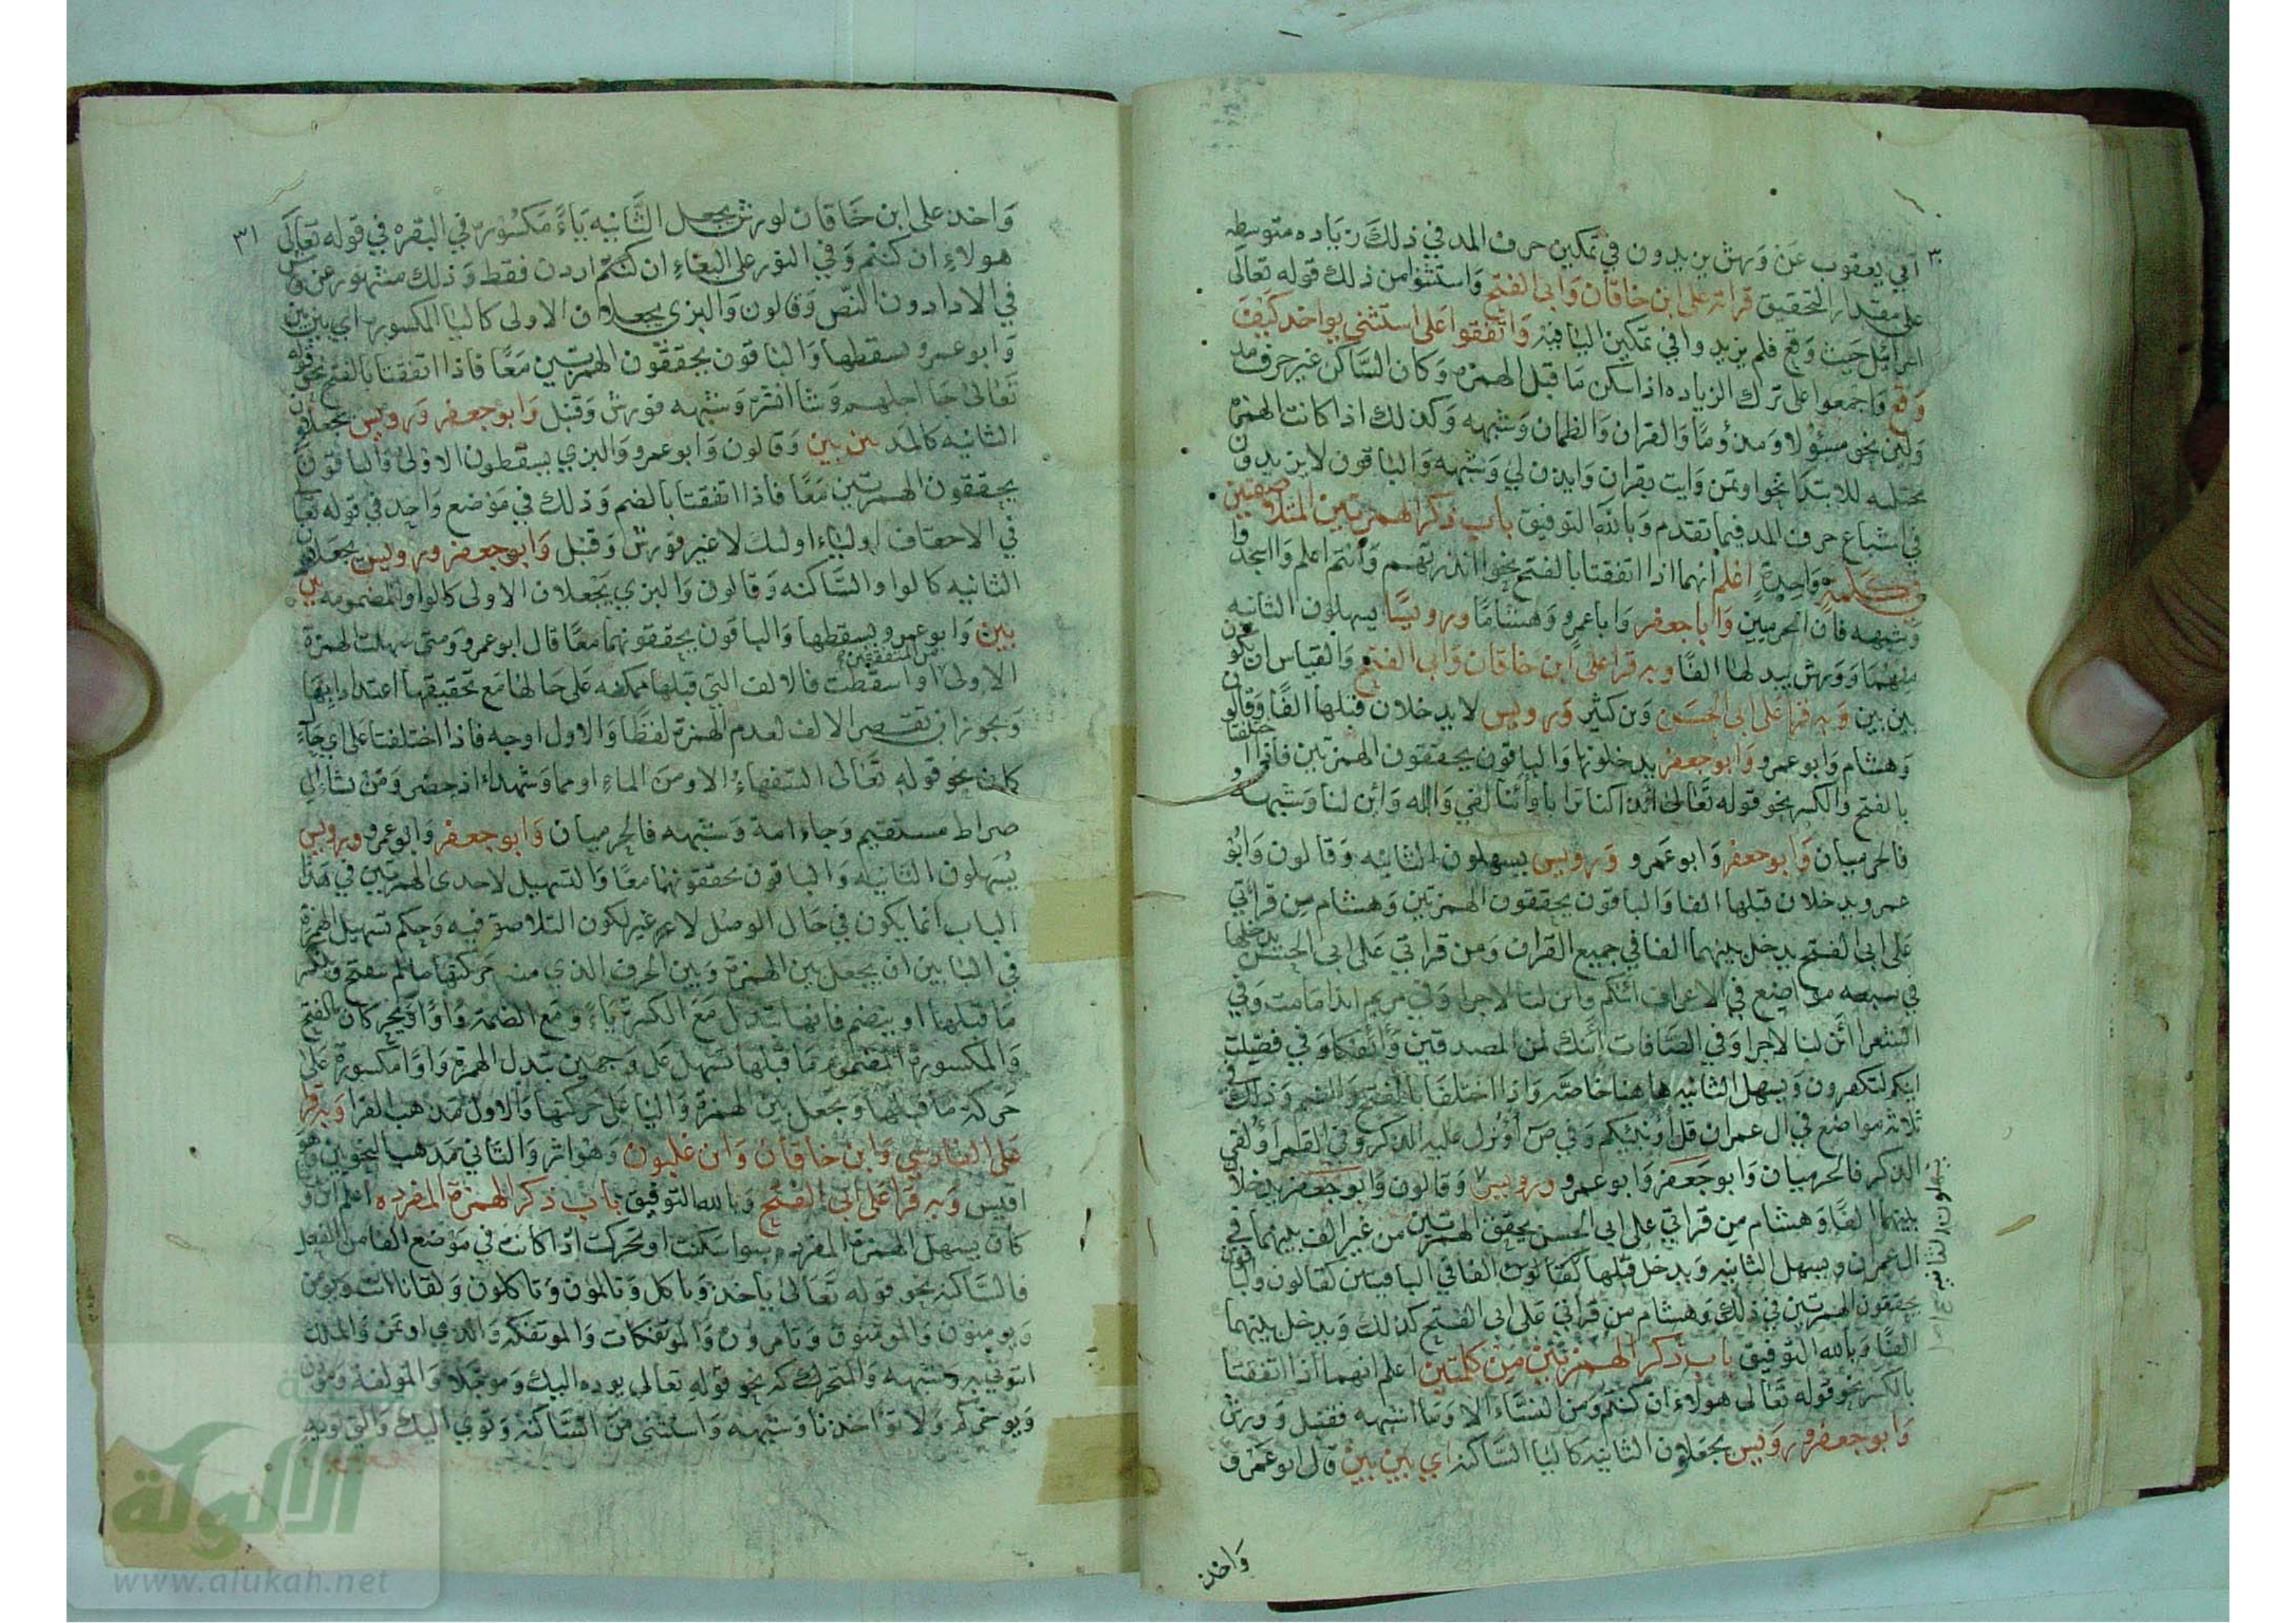 ٣٠
ابي يعقوب عن ورش يزيدون في تمكين حرف المد في ذلك زياده متوسطه
على مقدار التحقيق قراته على ابن خاقان وابي الفتح واستثنوا من ذلك قوله تعالى
اسرائيل حيث وقع فلم يزيدوا في تمكين اليا فيه واتفقوا على استثني يواخذ كيف
وقع واجمعوا على ترك الزياده اذا سكن ما قبل الهمزه وكان الساكن غير حرف مد
ولين نحو مسؤلا ومذؤما والقران والظمان وشبهه وكذلك اذا كانت الهمزة
مجتلبه للابتدا نحو اوتمن وايت بقران وايذن لي وشبهه والباقون لا يزيدون
في اشباع حرف المد فيما تقدم وبالله التوفيق باب ذكر الهمزتين المتلاصقتين
في كلمة واحدة اعلم انهما اذا اتفقتا بالفتح نحو اانذرتهم واانتم اعلم وااسجد
وشبهه فان الحرميين وابا جعفر وابا عمرو وهشاما ورويسا يسهلون الثانيه
منهما وورش يبدلها الفا وبه قرا على ابن خاقان وابي الفتح والقياس ان تكون
بين بين وبه قرا على ابي الحسن وبن كثير ورويس لا يدخلان قبلها الفا وقالون
وهشام وابو عمرو وابو جعفر يدخلونها والباقون يحققون الهمزتين فاذا اختلفتا
بالفتح والكسر نحو قوله تعالى ائذا كنا ترابا وائنا لفي واله وائن لنا وشبهه
فالحرميان وابو جعفر وابو عمرو ورويس يسهلون الثانيه وقالون وابو
عمرو يدخلان قبلها الفا والباقون يحققون الهمزتين وهشام من قراتي
على ابي الفتح يدخل بينهما الفا في جميع القران ومن قراتي على ابي الحسن يدخلها
في سبعه مواضع في الاعراف ائنكم وائن لنا لاجرا وفي مريم ائذا ما مت وفي
الشعرا ائن لنا لاجرا وفي الصافات ائنك لمن المصدقين وائفكا وفي فصلت
اينكم لتكفرون ويسهل الثانيه هاهنا خاصه واذا اختلفتا بالفتح والضم وذلك في
ثلاثه مواضع في ال عمران قل اؤنبئكم وفي ص اؤنزل عليه الذكر وفي القمر اؤلقي
الذكر فالحرميان وابو جعفر وابو عمرو ورويس وقالون وابو جعفر يدخلان
يسهلون الثانيه
بينهما الفا وهشام من قراتي على ابي الحسن يحقق الهمزتين من غير الف بينهما في
ال عمران ويسهل الثانيه ويدخل قبلها كقالون الفا في الباقيتين كقالون والباقون
يحققون الهمزتين في ذلك وهشام من قراتي على ابي الفتح كذلك ويدخل بينهما
الفا وبالله التوفيق باب ذكر الهمزتين من كلمتين اعلم انهما اذا اتفقتا
بالكسر نحو قوله تعالى هولاء ان كنتم ومن النساء الا وما اشبهه فقنبل وورش
وابو جعفر ورويس يجعلون الثانيه كاليا الساكنه اي بين بين قال ابو عمرو
واخذ
٣١
واخذ على ابن خاقان لورش بجعل الثانيه ياء مكسوره في البقره في قوله تعالى
هولاء ان كنتم وفي النور على البغاء ان كنتم اردن فقط وذلك مشهور عن ورش
في الادا دون النص وقالون والبزي يجعلان الاولى كاليا المكسوره اي بين بين
وابو عمرو يسقطها والباقون يحققون الهمزتين معا فاذا اتفقتا بالفتح نحو قوله
تعالى جا اجلهم وشا انشره وشبهه فورش وقنبل وابو جعفر ورويس يجعلون
الثانيه كالمد بين بين وقالون وابو عمرو والبزي يسقطون الاولى والباقون
يحققون الهمزتين معا فاذا اتفقتا بالضم وذلك في موضع واحد في قوله تعالى
في الاحقاف اولياء اولئك لا غير فورش وقنبل وابو جعفر ورويس يجعلان
الثانيه كالواو الساكنه وقالون والبزي يجعلان الاولى كالواو المضمومه بين
بين وابو عمرو يسقطها والباقون يحققونهما معا قال ابو عمرو ومتى سهلت الهمزة
من المتفقتين
الاولى او اسقطت فالالف التي قبلها ممكنه على حالها مع تحقيقها اعتدادا بها
ويجوز ان تقصر الالف لعدم الهمزة لفظا والاول اوجه فاذا اختلفتا على اي حال
كان نحو قوله تعالى السفهاء الا ومن الماء او مما وشهداء اذ حضر ومن يشاء الى
صراط مستقيم وجاء امة وشبهه فالحرميان وابو جعفر وابو عمرو ورويس
يسهلون الثانيه والباقون يحققونهما معا والتسهيل لاحدى الهمزتين في هذا
الباب انما يكون في حال الوصل لا غير لكون التلاصق فيه وحكم تسهيل الهمزة
في البابين ان يجعل بين الهمزة وبين الحرف الذي منه حركتها ما لم تنفتح وينكسر
ما قبلها او ينضم فانها تبدل مع الكسرة ياء ومع الضمة واوا ويحركان بالفتح
والمكسورة المضموم ما قبلها تسهل على وجهين تبدل الهمزة واوا مكسورة على
حركة ما قبلها وتجعل بين الهمزة واليا على حركتها والاول مذهب القرا وبه قرا
على الفارسي وابن خاقان وابن غلبون وهو اثر والثاني مذهب النحويين وهو
اقيس وبه قرا على ابي الفتح وبالله التوفيق باب ذكر الهمزة المفرده اعلم ان ورشا
كان يسهل الهمزة المفرده سوا سكنت او تحركت اذا كانت في موضع الفا من الفعل
فالساكنه نحو قوله تعالى ياخذ وياكل وتالمون وتاكلون ولقانا ائت ويومن
ويومنون والمومنون وتامرون والموتفكات والموتفكه والذي اوتمن والملك
ائتوني به وشبهه والمتحركه نحو قوله تعالى يوده اليك وموجلا والمولفة وموذن
ويوخركم ولا تواخذنا وشبهه واستثنى من الساكنه وتوي اليك والتي تويه
الالوكة
www.alukah.net